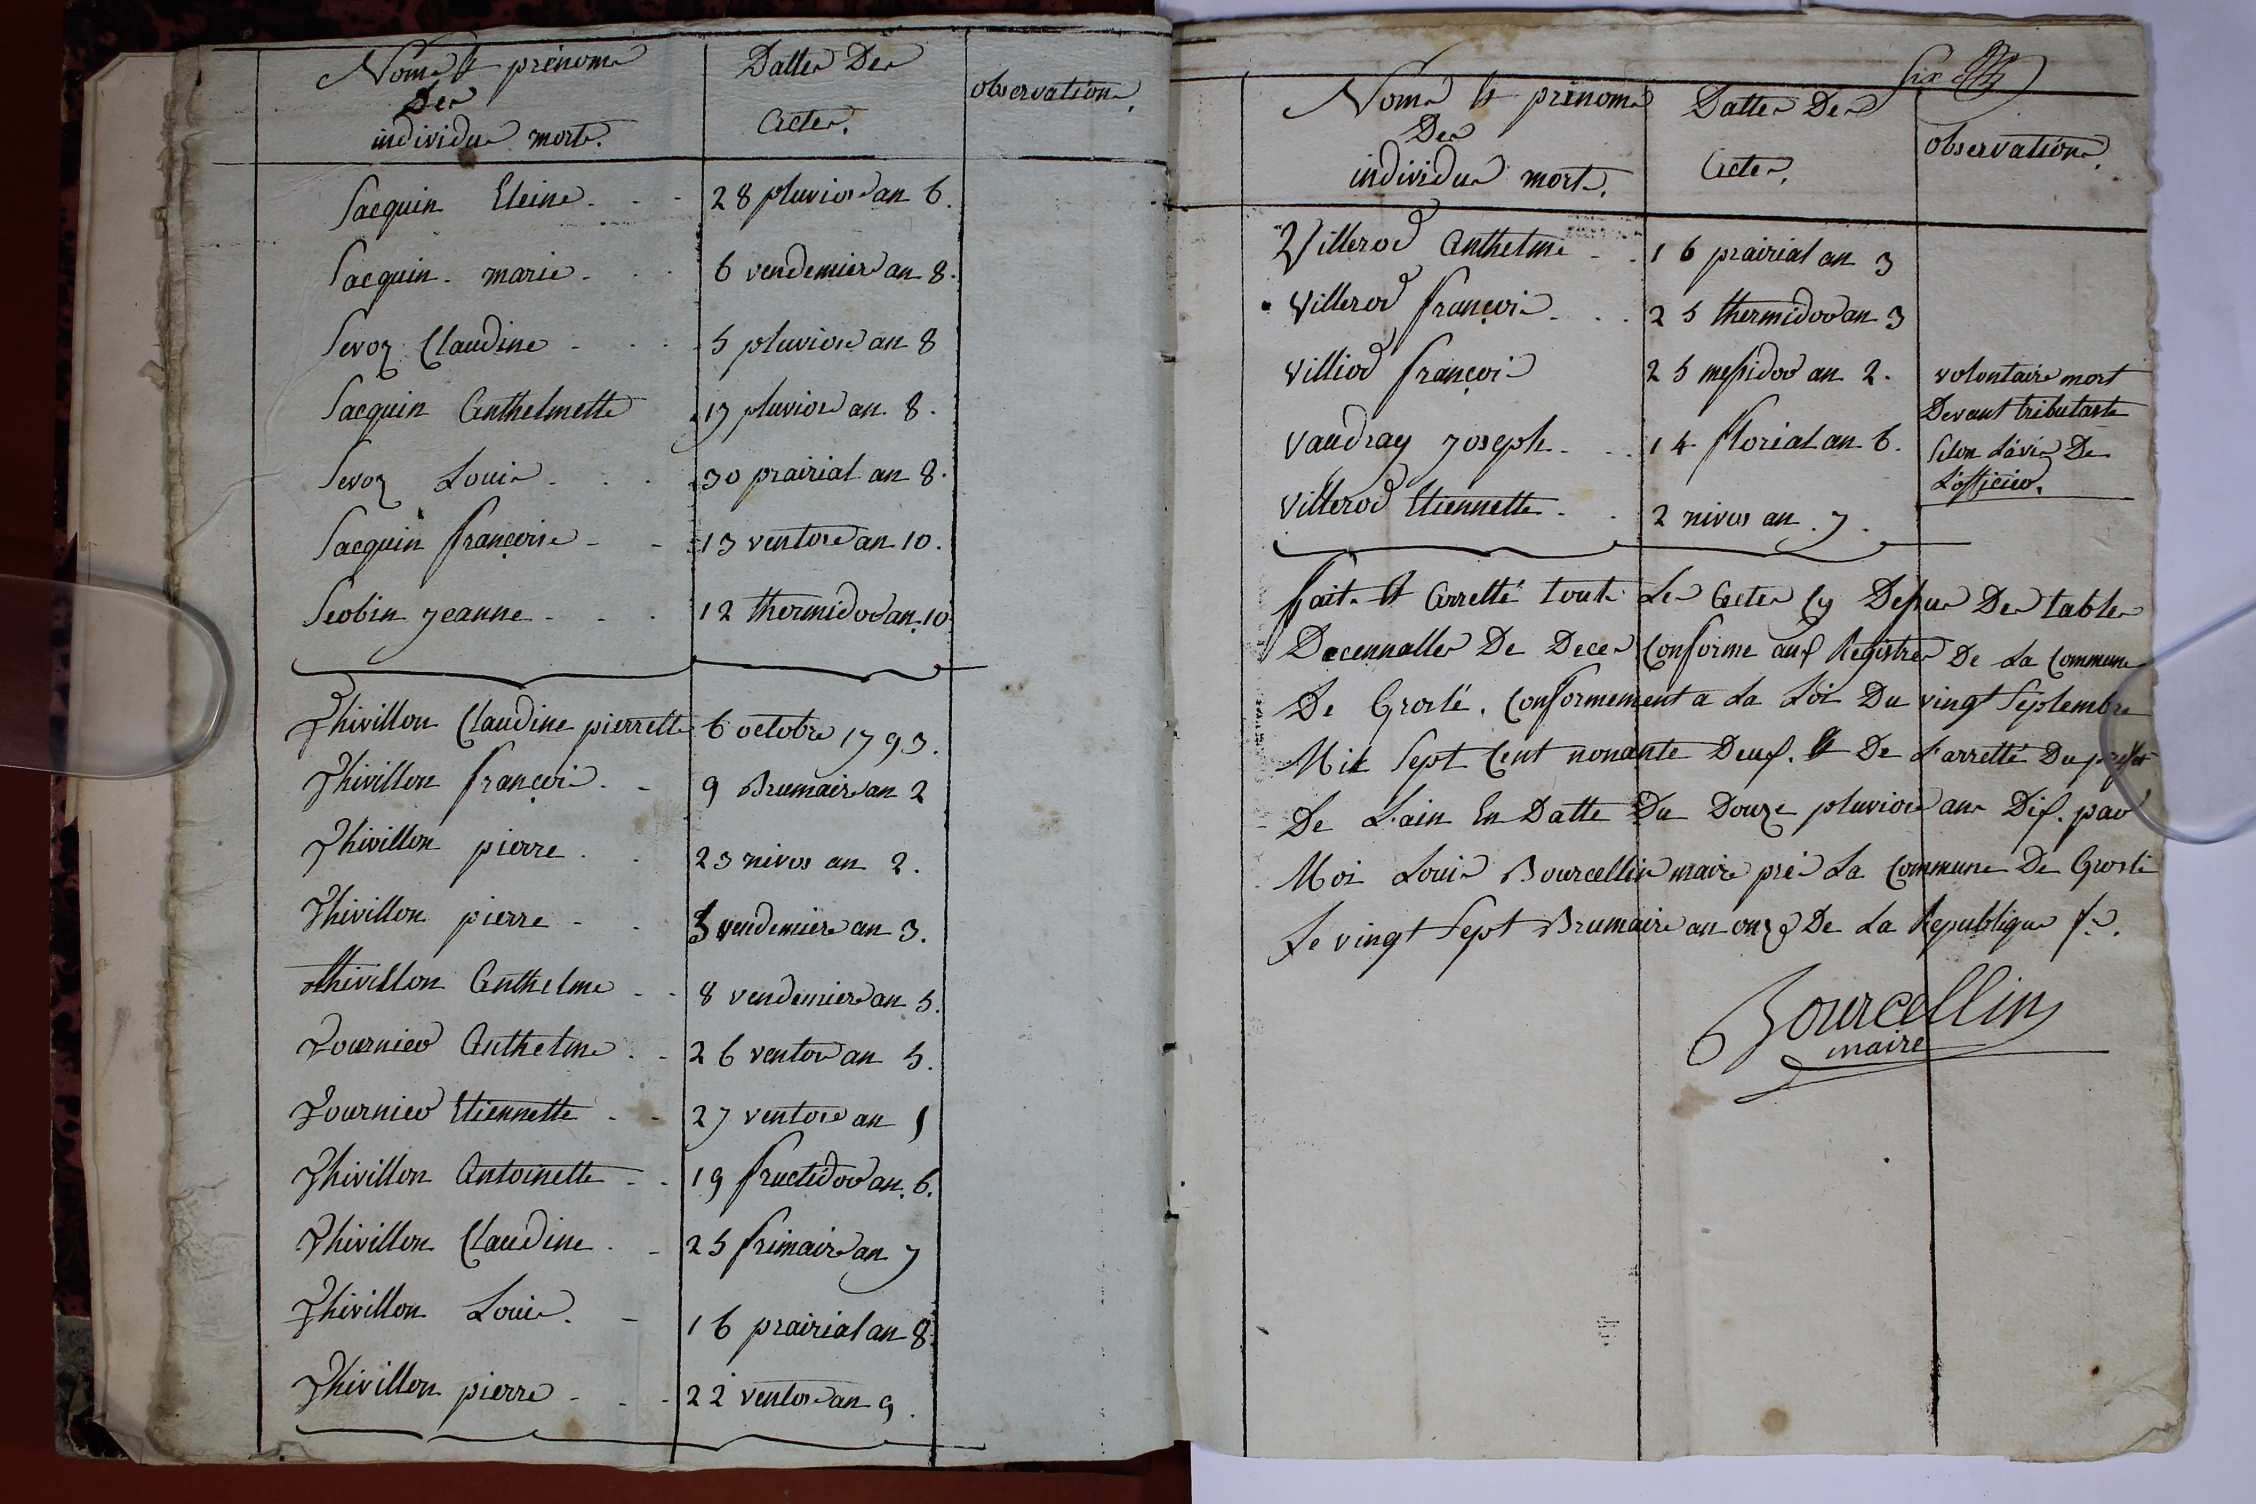 Noms Et prénoms
Des
individus morts.
Dattes Des
Actes.
observations.
Sacquin Eleine - - 28 pluviose an 6.
Sacquin - marie - - 6 vendemiere an 8.
Sevoz Claudine - - 5 pluviose an 8
Sacquin Anthelmette 17 pluviose an 8.
Sevoz Louis - - 30 prairial an 8.
Sacquin françoise - - 13 ventose an 10.
Seobin jeanne - - 12 thermidor an 10
Thivillon Claudine pierrette 6 octobre 1793.
Thivillon françois - - 9 Brumaire an 2
Thivillon pierre - - 23 nivos an 2.
Thivillon pierre - - 3 vendemiere an 3.
thivillon Anthelme - - 8 vendemiere an 5.
Tournier Anthelme - - 26 ventos an 5.
Tournier Etiennette - - 27 ventose an
Thivillon Antoinette - - 19 fructidor an 6.
Thivillon Claudine - - 25 frimaire an 7
Thivillon Louis - 16 prairial an 8.
Thivillon pierre - - - 22 ventose an 9.
Six
Noms Et prénoms
Des
individus morts.
Dattes Des
Actes.
observations.
Villerod Anthelme - - 16 prairial an 3
Villerod françois - - 25 thermidor an 3
Villiod françois 25 messidor an 2. volontaire mort
Devant tributaste
Vaudray joseph - - 14 florial an 6. Selon L'avis De
L'officier.
Villerod Etiennette - - 2 nivos an 7.
fait Et Arretté touts Les Actes Cy Dessus Des tables
Decennalles De Deces Conforme aux Registres De La Commune
De Groslé. Conformement a La Loi Du vingt Septembre
Mil Sept Cent nonante Deux. Et De L'arretté Du prefet
De L'ain En Datte Du Douze pluviose an Dix. par
Moi Louis Bourcellin maire pré La Commune De Groslé
Le vingt Sept Brumaire an onze De La Republique f.se.
Bourcellin
maire